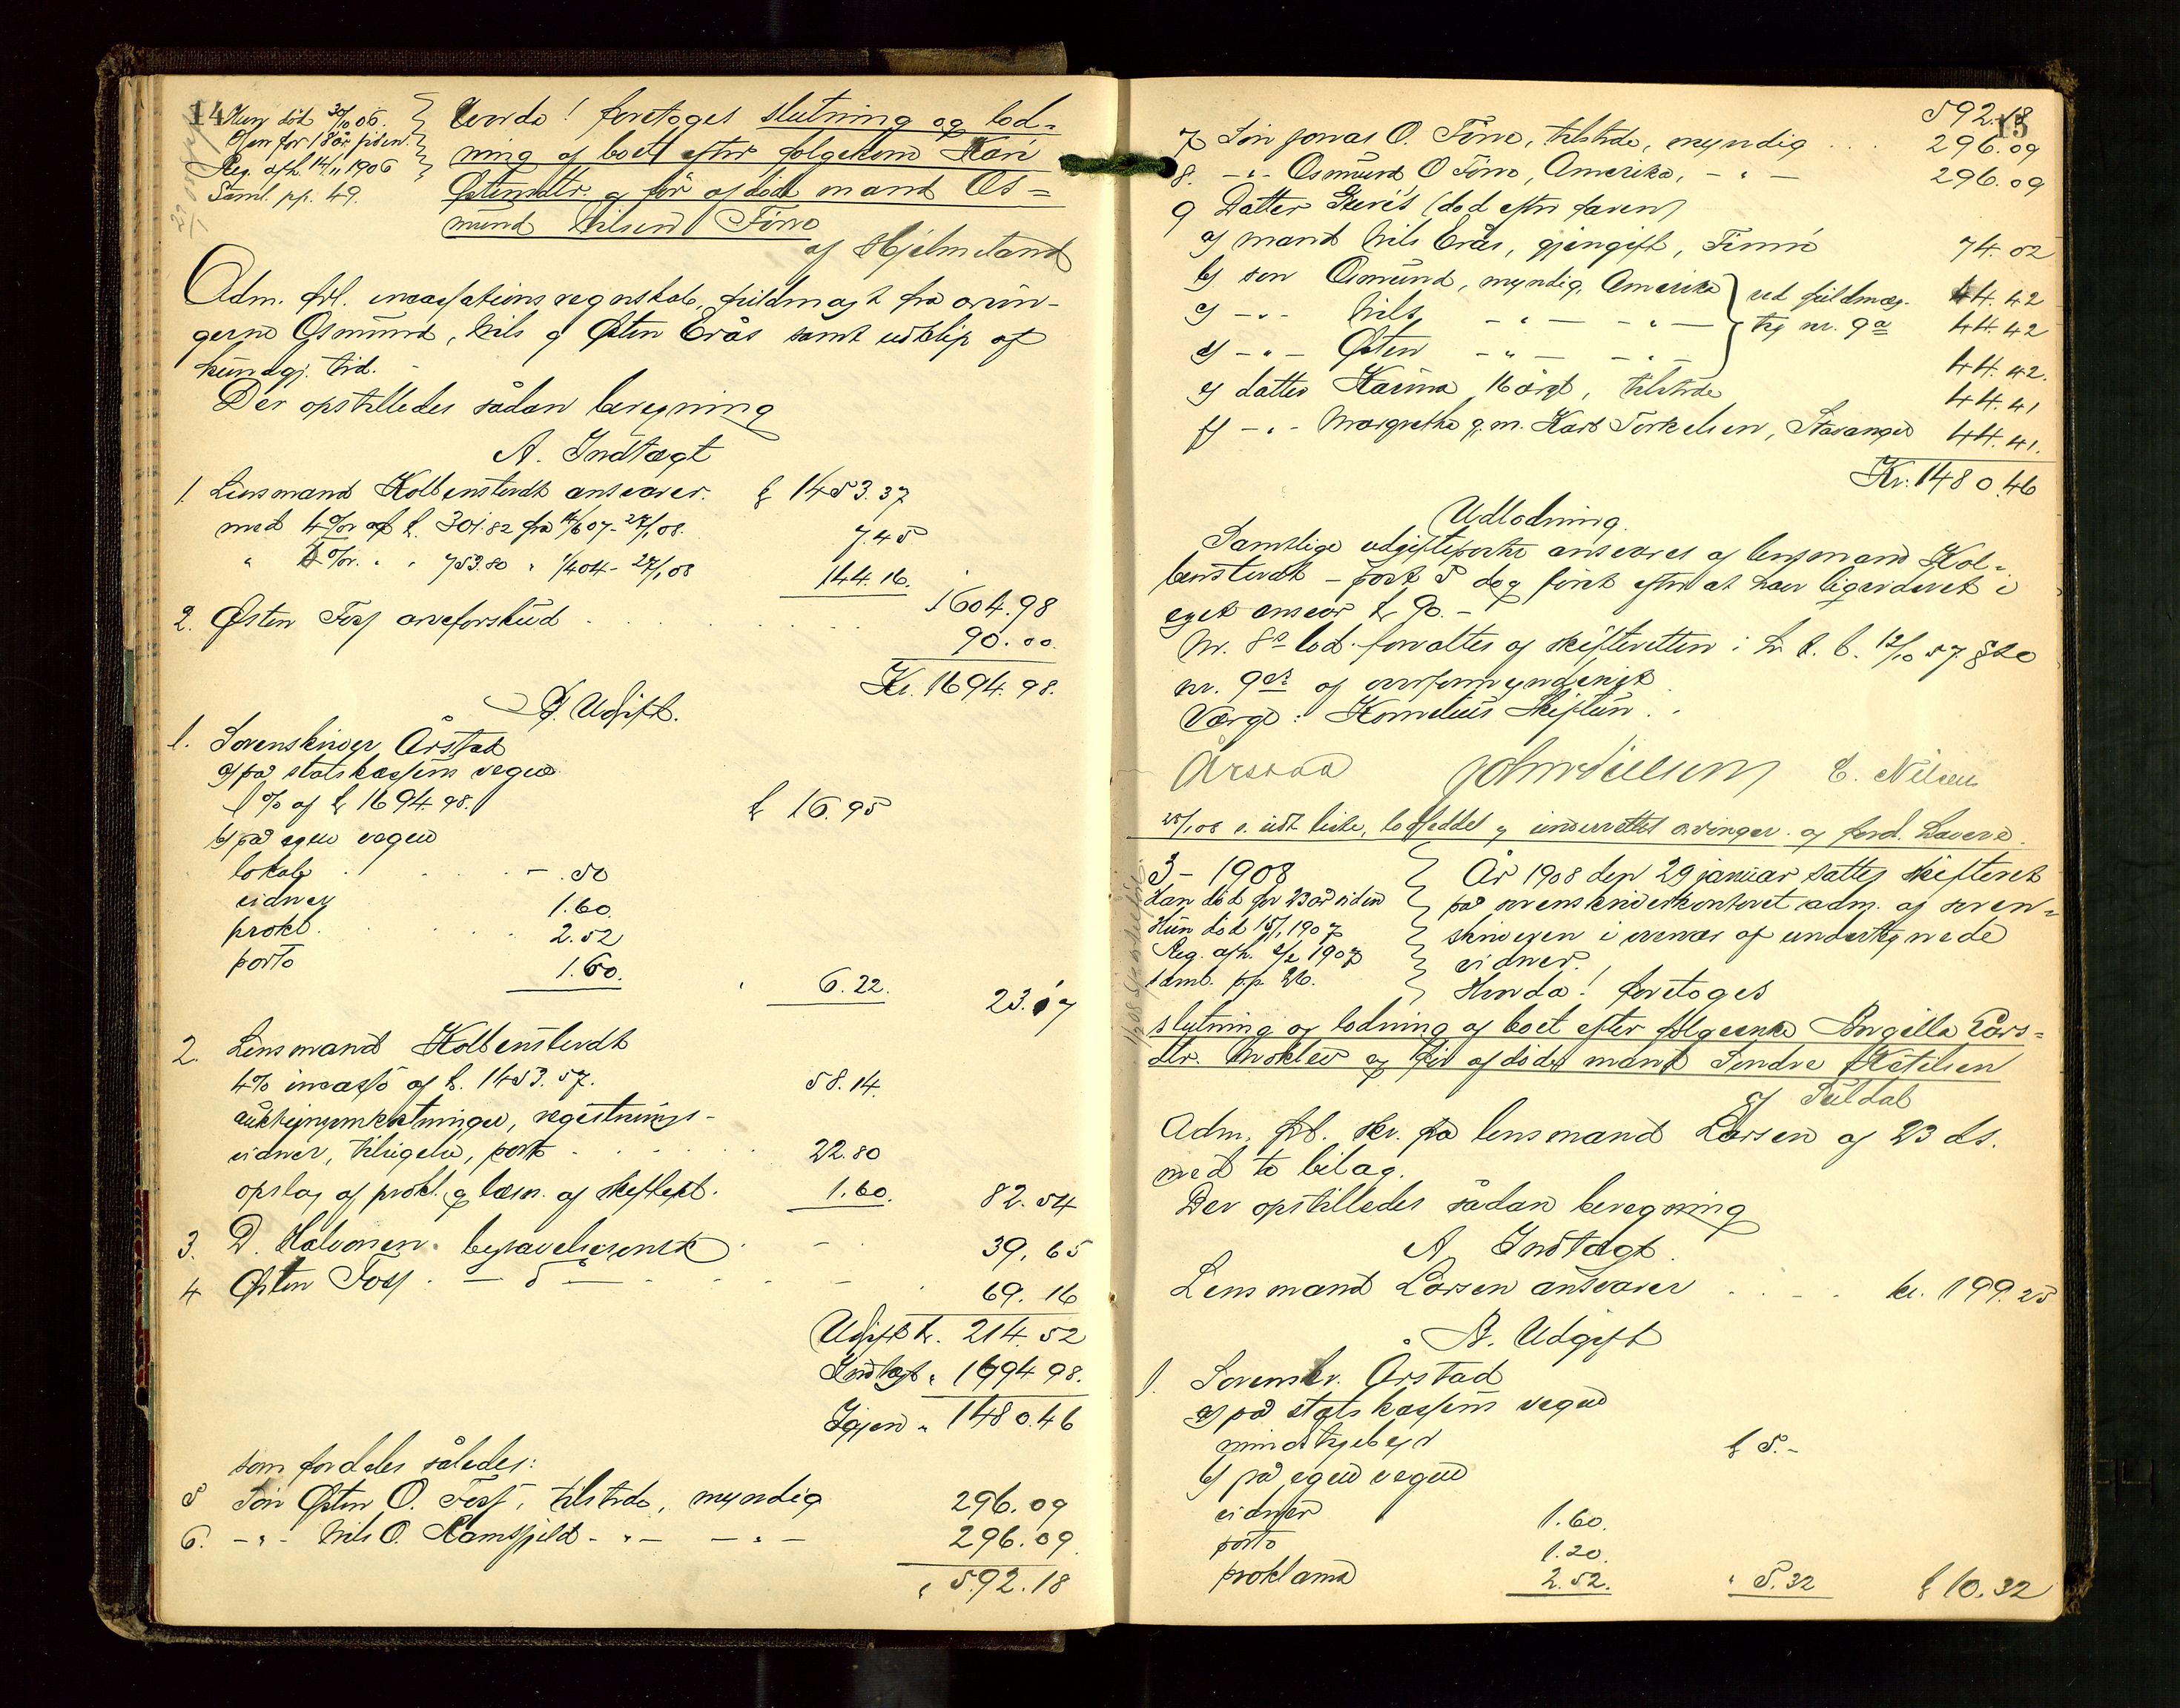 14
Hun död 30/10 06.
Han for 18 år siden.
Reg. afh. 14/11 1906
Saml. pp. 49.
Hvorda! foretoges slutning og lod-
ning af boet efter folgekone Kari
Østensdtr. og før afdöd mand Os-
mund Nilsen Fövo
af Hjelmeland
Adm. frl. incassationsregnskab, fuldmagt fra arvin-
gerne Osmund, Nils og Østen Erås samt udklip af
kundgj. tid.
Der opstilledes sådan beregning
A. Indtægt
1. Lensmand Kolbenstvedt ansvarer. k 1453.37
med 4% af k. 301.82 fra 14/6 07 - 27/1 08. 7.45
" 5 % " " 753.80 " 1/4 04 - 27/1 08 144.16.
1604.98
2. Østen Fosj arveforskud 90.00.
Kr. 1694.98.
B. Udgift.
1. Sorenskriver Årstad
a) på statskassens vegne
1% af k 1694.98. k 16.95
b) på egne vegne
lokale - .50
vidner 1.60.
prokl. 2.52
porto 1.60.
" 6.22. 23.17
2. Lensmand Kolbenstvedt
4% incasso af k. 1453.57. 58.14.
auktionsomkostninger, registrerings-
vidner, tilsigelse, porto 22.80
opslag af prokl. og læsn. af skifteext. 1.60. 82.54
3. D. Halvorsen begravelseomk 39.65
4 Østen Fosj - " - 69.16
Udgift k. 214.52
Indtægt " 1694.98.
Igjen " 1480.46
som fordeles således:
5 Sön Østen O. Fosj, tilstede, myndig 296.09
6. - " - Nils O. Ramsfjeld - " - - " - 296.09
" 592.18
15
592.18
7 Sön Jonas O. Fövo, tilstede, myndig 296.09
8. - " - Osmund O Fövo, Amerika, - " - 296.09
9 Datter Siri (död efter faren)
a) mand Nils Erås, gjengift, Finnö 74.02
b) sön Osmund, myndig, Amerika } ved fuldmæg- 44.42
c) - " - Nils - " - - " - } tig nr. 9a 44.42
d) - " - Østen - " - - " - 44.42.
e) datter Karina 16 årgl, tilstede 44.41
f) - " - Margrethe g.m. Karl Torkelsen, Stavanger 44.41.
Kr. 1480.46
Udlodning.
Samtlige udgiftsposter ansvares af lensmand Kol-
benstvedt - post 5 dog först efter at have ligvideret i
eget ansvar k 90.-
Nr. 8s lod forvaltes af skifteretten i
nr. 9es af overformynderiet
Værge: Kornelius Skiftun.
Årstad John Nilsen E. Nilsen
28/1 08 e. udt liste, lodseddel og underrettet arvinger og ford. haverne.
3 - 1908
Han död for 23 år siden
Hun död 15/1 1907
Reg. afh. 5/2 1907
saml. pp 26.
År 1908 den 29 januar sattes skifteret
på sorenskriverkontoret adm. af soren-
skriveren i nærvær af undertegnede
vidner.
Hvorda! foretoges
slutning og lodning af boet efter folgeenke Ingilla Lars-
dtr. Moklev og för afdöde mand Sondre Ketilsen
af Suldal
Adm. frl. skr. fra lensmand Larsen af 23 ds.
med to bilag.
Der opstilledes sådan beregning
A. Indtægt.
Lensmand Larsen ansvarer kr. 199.25
B. Udgift
1. Sorenskr. Årstad
a) på statskassens vegne
mindstegebyr k 5.-
b) på egne vegne
vidner 1.60.
porto 1.20.
proklama 2.52. " 5.32 k 10.32